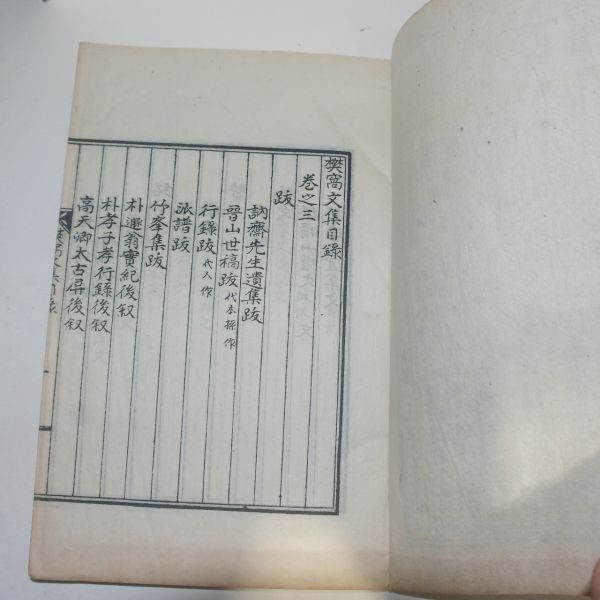 樊窩文集目錄
卷之三
跋
訥齋先生遺集跋
晉山世稿跋 代本孫作
行錄跋 代人作
派譜跋
竹峯集跋
朴遯翁實紀後叙
朴孝子孝行錄後叙
高天卿太古屏後叙